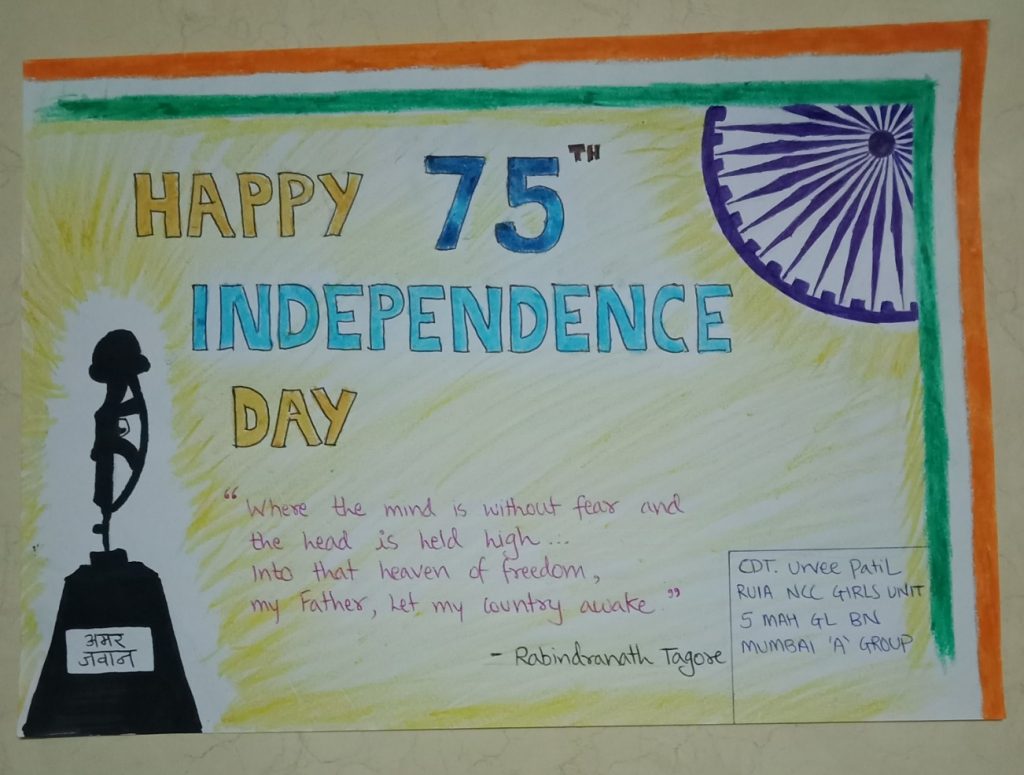 HAPPY 75TH
INDEPENDENCE
DAY
"Where the mind is without fear and
the head is held high...
Into that heaven of freedom,
my Father, let my country awake"
- Rabindranath Tagore
CDT. Urvee Patil
RUIA NCC GIRLS UNIT
5 MAH GL BN
MUMBAI 'A' GROUP
अमर
जवान